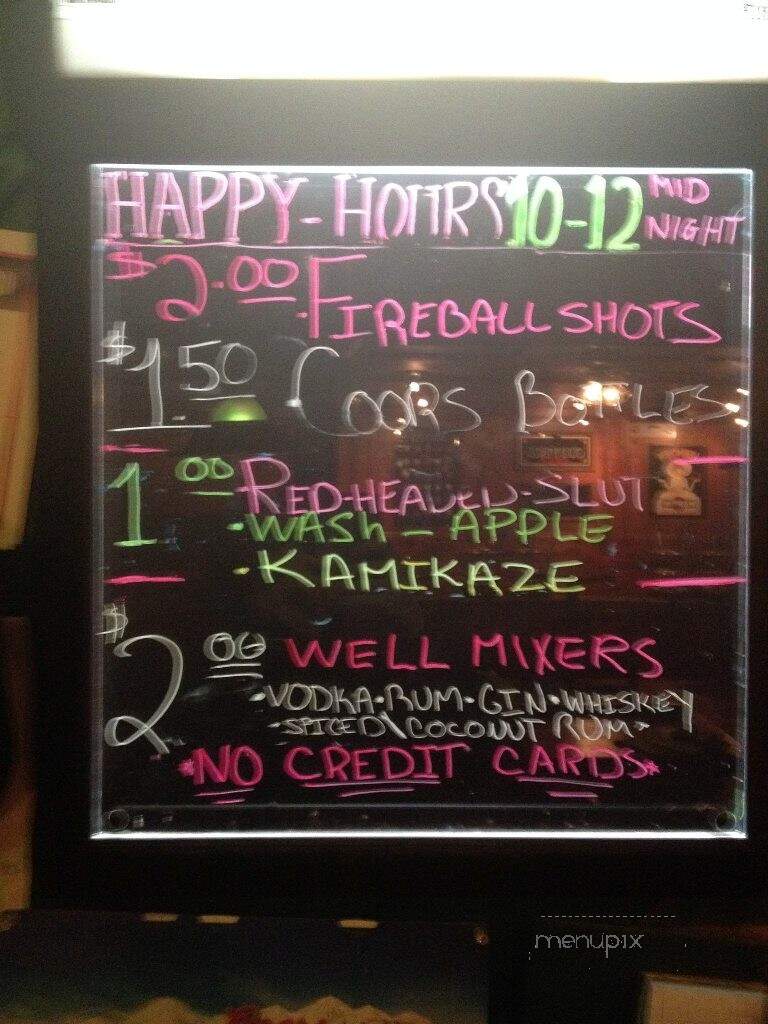 HAPPY-HOURS 10-12 MID NIGHT
$2.00 ·FIREBALL SHOTS
$1.50 COORS BOTTLES
1 00 RED-HEADED-SLUT
·WASH - APPLE
·KAMIKAZE
$2 00 WELL MIXERS
·VODKA·RUM·GIN·WHISKEY
·SPICED\COCONUT RUM·
*NO CREDIT CARDS*
menupix